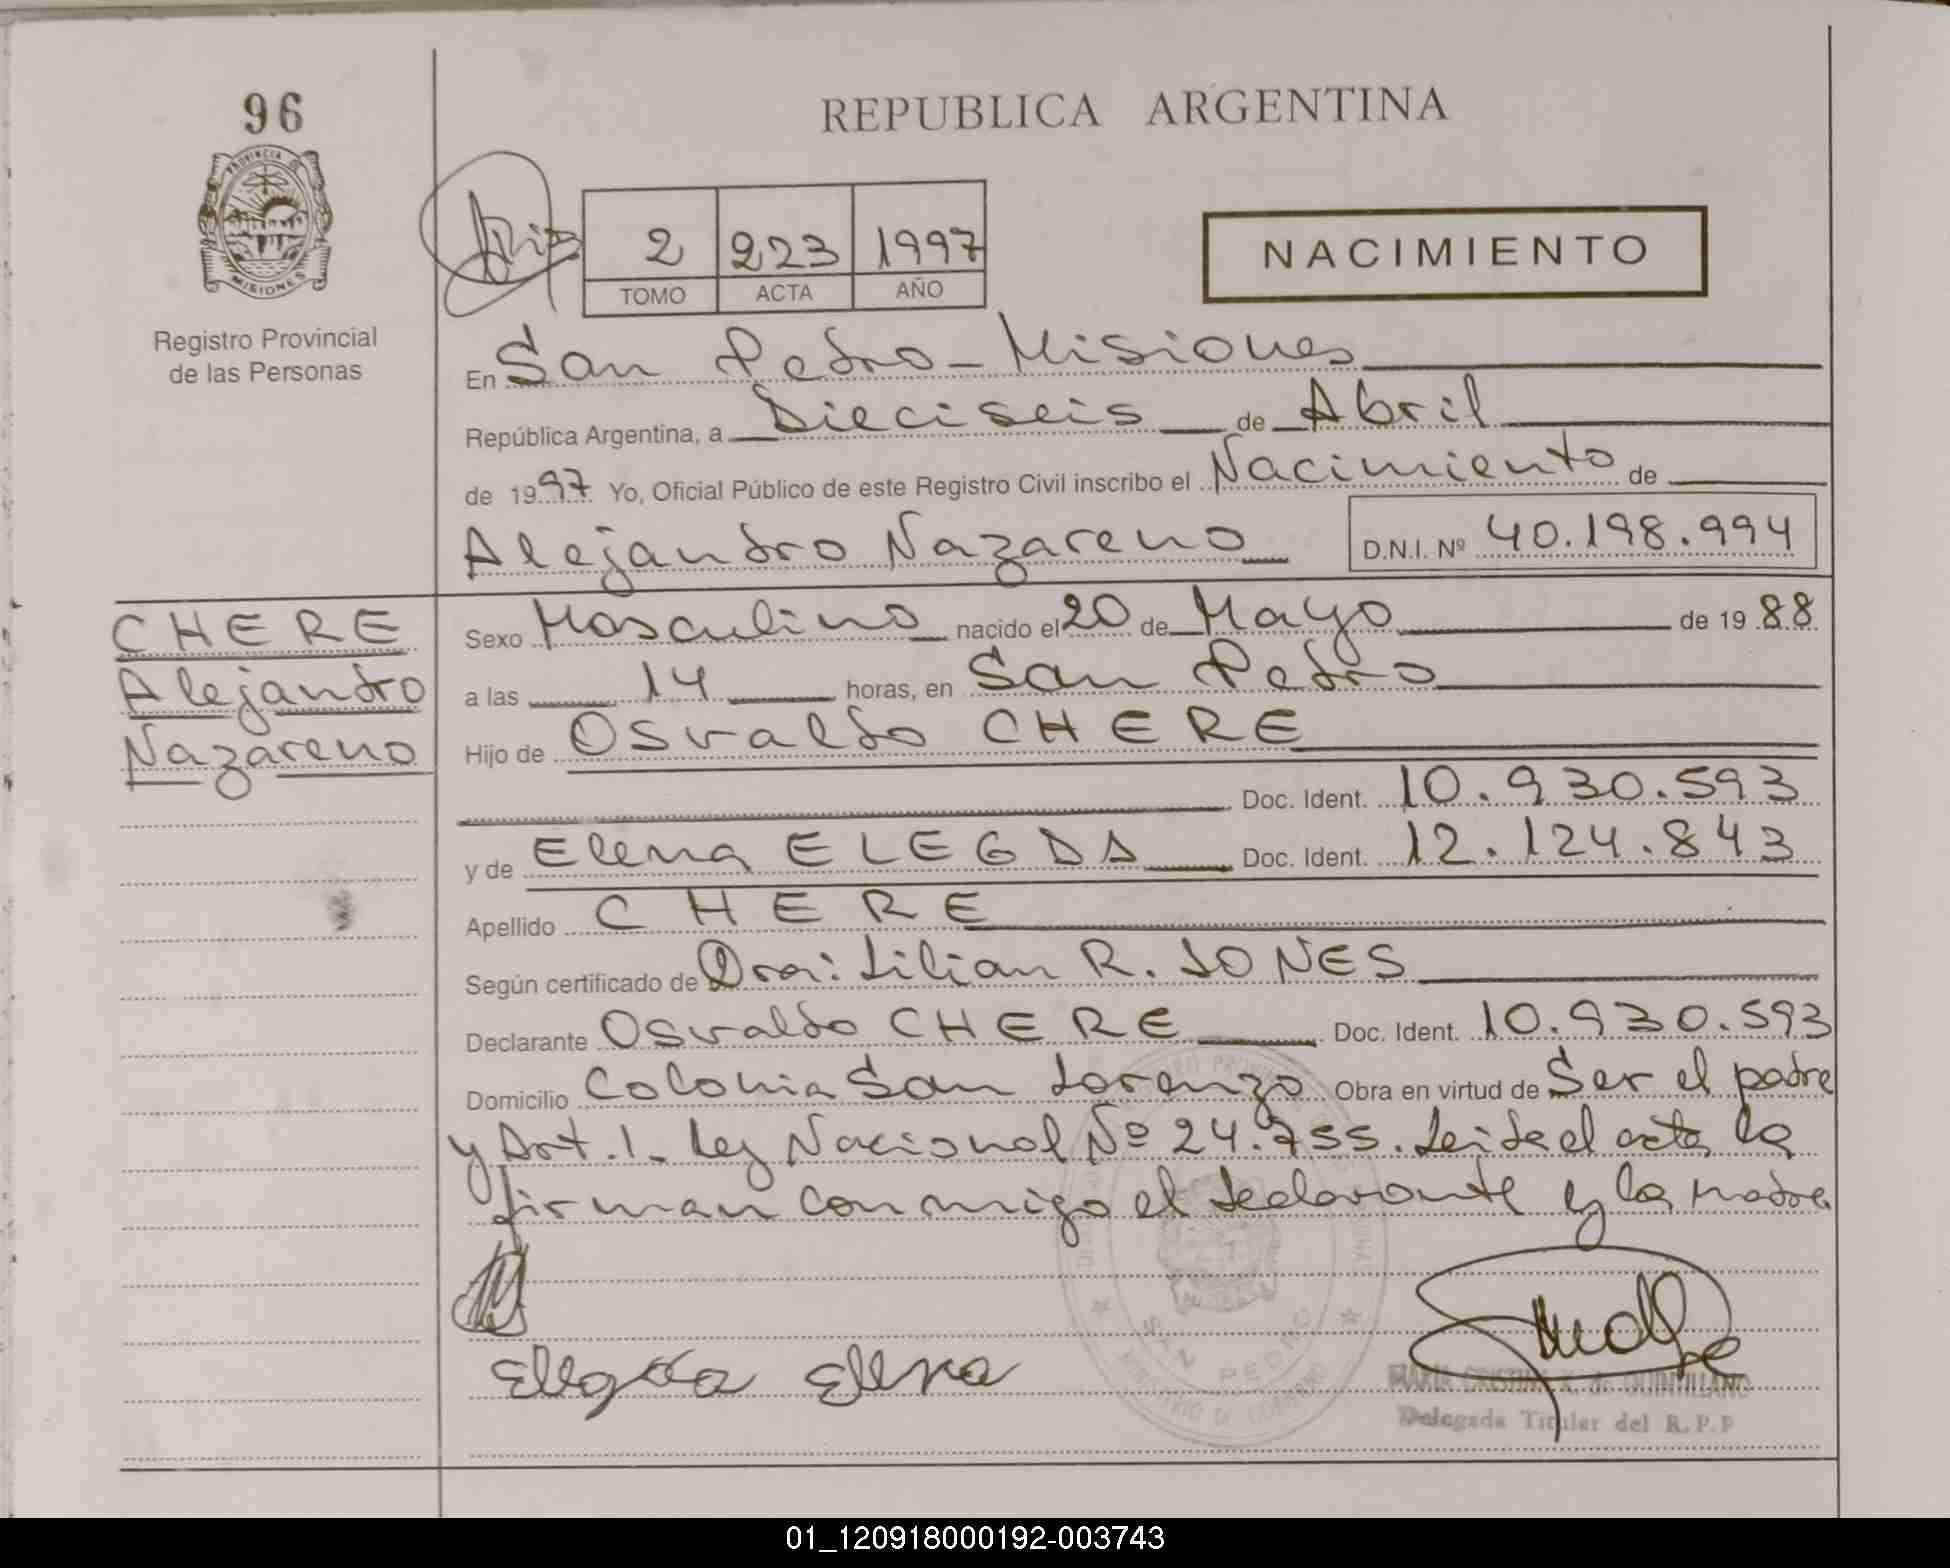 96
REPUBLICA ARGENTINA
PROVINCIA DE MISIONES
2 223 1997
TOMO ACTA AÑO
NACIMIENTO
Registro Provincial
de las Personas
En San Pedro - Misiones
República Argentina, a Dieciseis de Abril
de 1997 Yo, Oficial Público de este Registro Civil inscribo el Nacimiento de
Alejandro Nazareno D.N.I. Nº 40.198.994
CHERE
Alejandro
Nazareno
Sexo Masculino nacido el 20 de Mayo de 1988
a las 14 horas, en San Pedro
Hijo de Osvaldo CHERE
Doc. Ident. 10.930.593
y de Elena ELEGDA Doc. Ident. 12.124.843
Apellido CHERE
Según certificado de Dra: Lilian R. JONES
Declarante Osvaldo CHERE Doc. Ident. 10.930.593
Domicilio Colonia San Lorenzo Obra en virtud de Ser el padre
y Art. 1. Ley Nacional Nº 24.755. Leida el acta la
firman conmigo el declarante y la madre
Elegda Elena
SAN PEDRO
MINISTERIO DE GOBIERNO
MARIA CRISTINA K. de QUINTILLANO
Delegada Titular del R.P.P
01_120918000192-003743